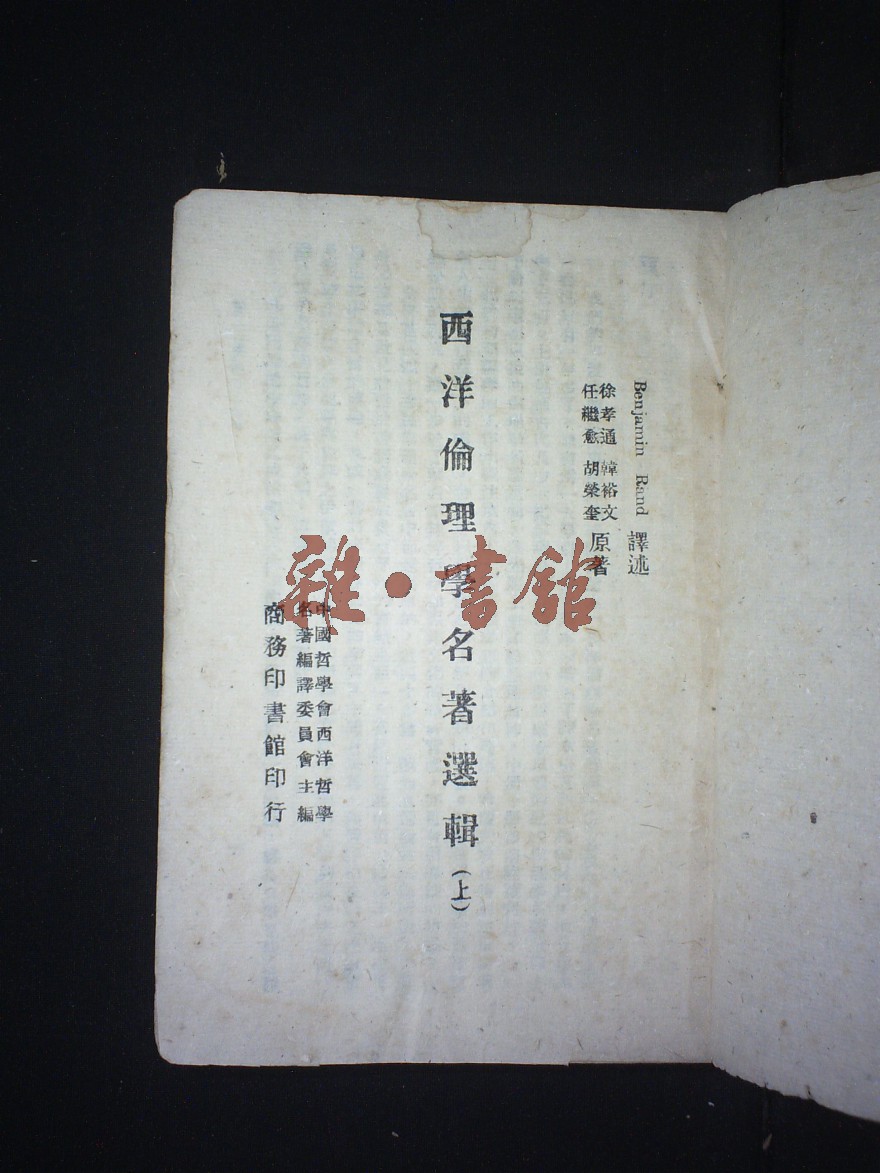 Benjamin Rand 譯述
徐孝通 韓裕文
任繼愈 胡榮奎
原著
西洋倫理學名著選輯(上)
中國哲學會西洋哲學
名著編譯委員會主編
商務印書館印行
雜·書館